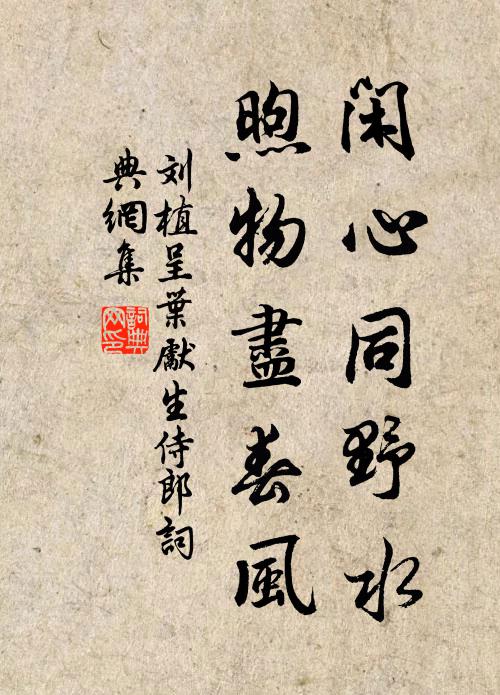 閑心同野水
煦物盡春風
刘植呈葉獻生侍郎詞
典網集
詞典网印